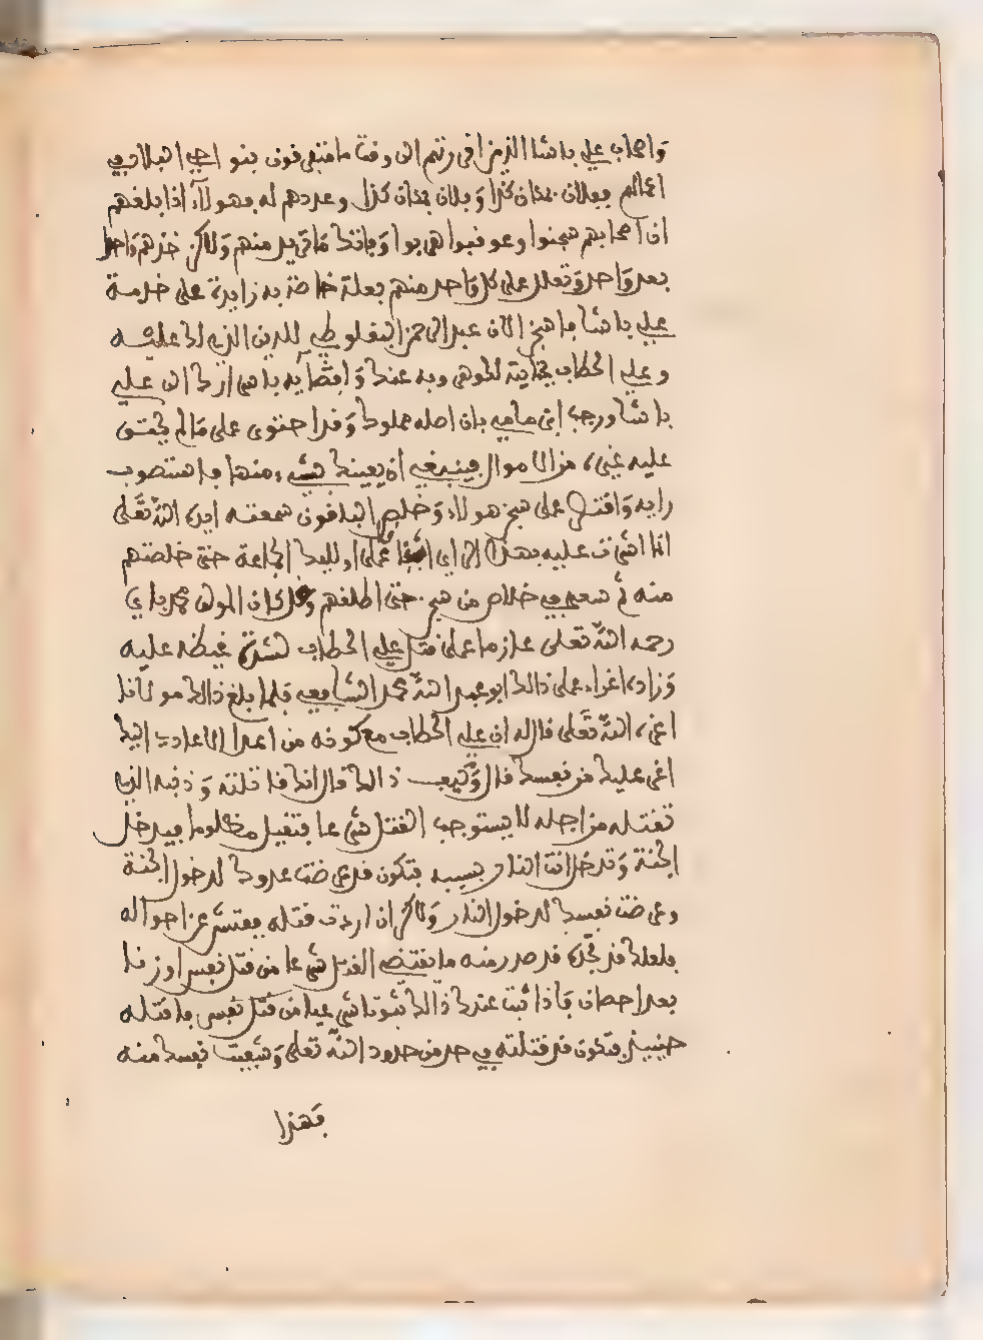 وَاصحاب علي باشا الذين افرزتهم الى وقتنا متفرقون بنواحي البلاد في
اعمالهم بفلان بمكان كذا وَفلان بمكان كذا وعددهم له فهولاء اذا بلغهم
ان اصحابهم سجنوا وعوقبوا هربوا وَفاتك مَا في يد منهم وَلاكن خذهم وَاحدا
بعد وَاحد وَتعلل على كل وَاحد منهم بعلة خاصة به زايدة على خدمة
علي باشا فاسجن الان عبد الرحمن البقلوطي للدين الذي لك عليه
وعلي الحطاب بجناية لكونه وبه عندك وَافضايه باسرارك الى علي
باشا ورجب ابن مامي بان اصله مملوك وَقد احتوى على مَا لم يحتو
عليه غيره من الاموال فينبغي ان يعينك بشيء منها فاستصوب
رايه وَاقتصر على سجن هولاء وَخلص الباقون سمعته ايده اللّه تعَلى
انا اشرت عليه بهذا الراي اشفاقا على اوليك الجماعة حتى خلصتهم
منه ثم سعى في خلاص من سجن حتى اطلقهم وكان المولى محمد باي
رحمه اللّه تعلى عازما على قتل علي الحطاب لشدة غيظه عليه
وَزاده اغراء على ذالك ابو عبد اللّه محمد الشافعي فلما بلغ ذالك مولانا
اعزه اللّه تعَلى قال له ان علي الحطاب مع كونه من اعدا الاعادي اليك
اعز عليك من نفسك قال وَكيف ذالك قال انك ان قتلته وَذنبه الذي
تقتله من اجله لا يستوجب القتل شرعا فتقتل مظلوما فيدخل
الجنة وَتدخل انت النار بسببه فتكون قد عرضت عدوك لدخول الجنة
وعرضت نفسك لدخول النار وَلاكن ان اردت قتله ففتش عن احواله
فلعلك قد تجده قد صدر منه ما يقتضي القتل شرعا من قتل نفس او زنا
بعد احصان فاذا ثبت عندك ذالك ثبوتا شرعيا من قتل نفس فاقتله
حينيذ فتكون قد قتلته في حد من حدود اللّه تعلى وَشفيت نفسك منه
فَهذا